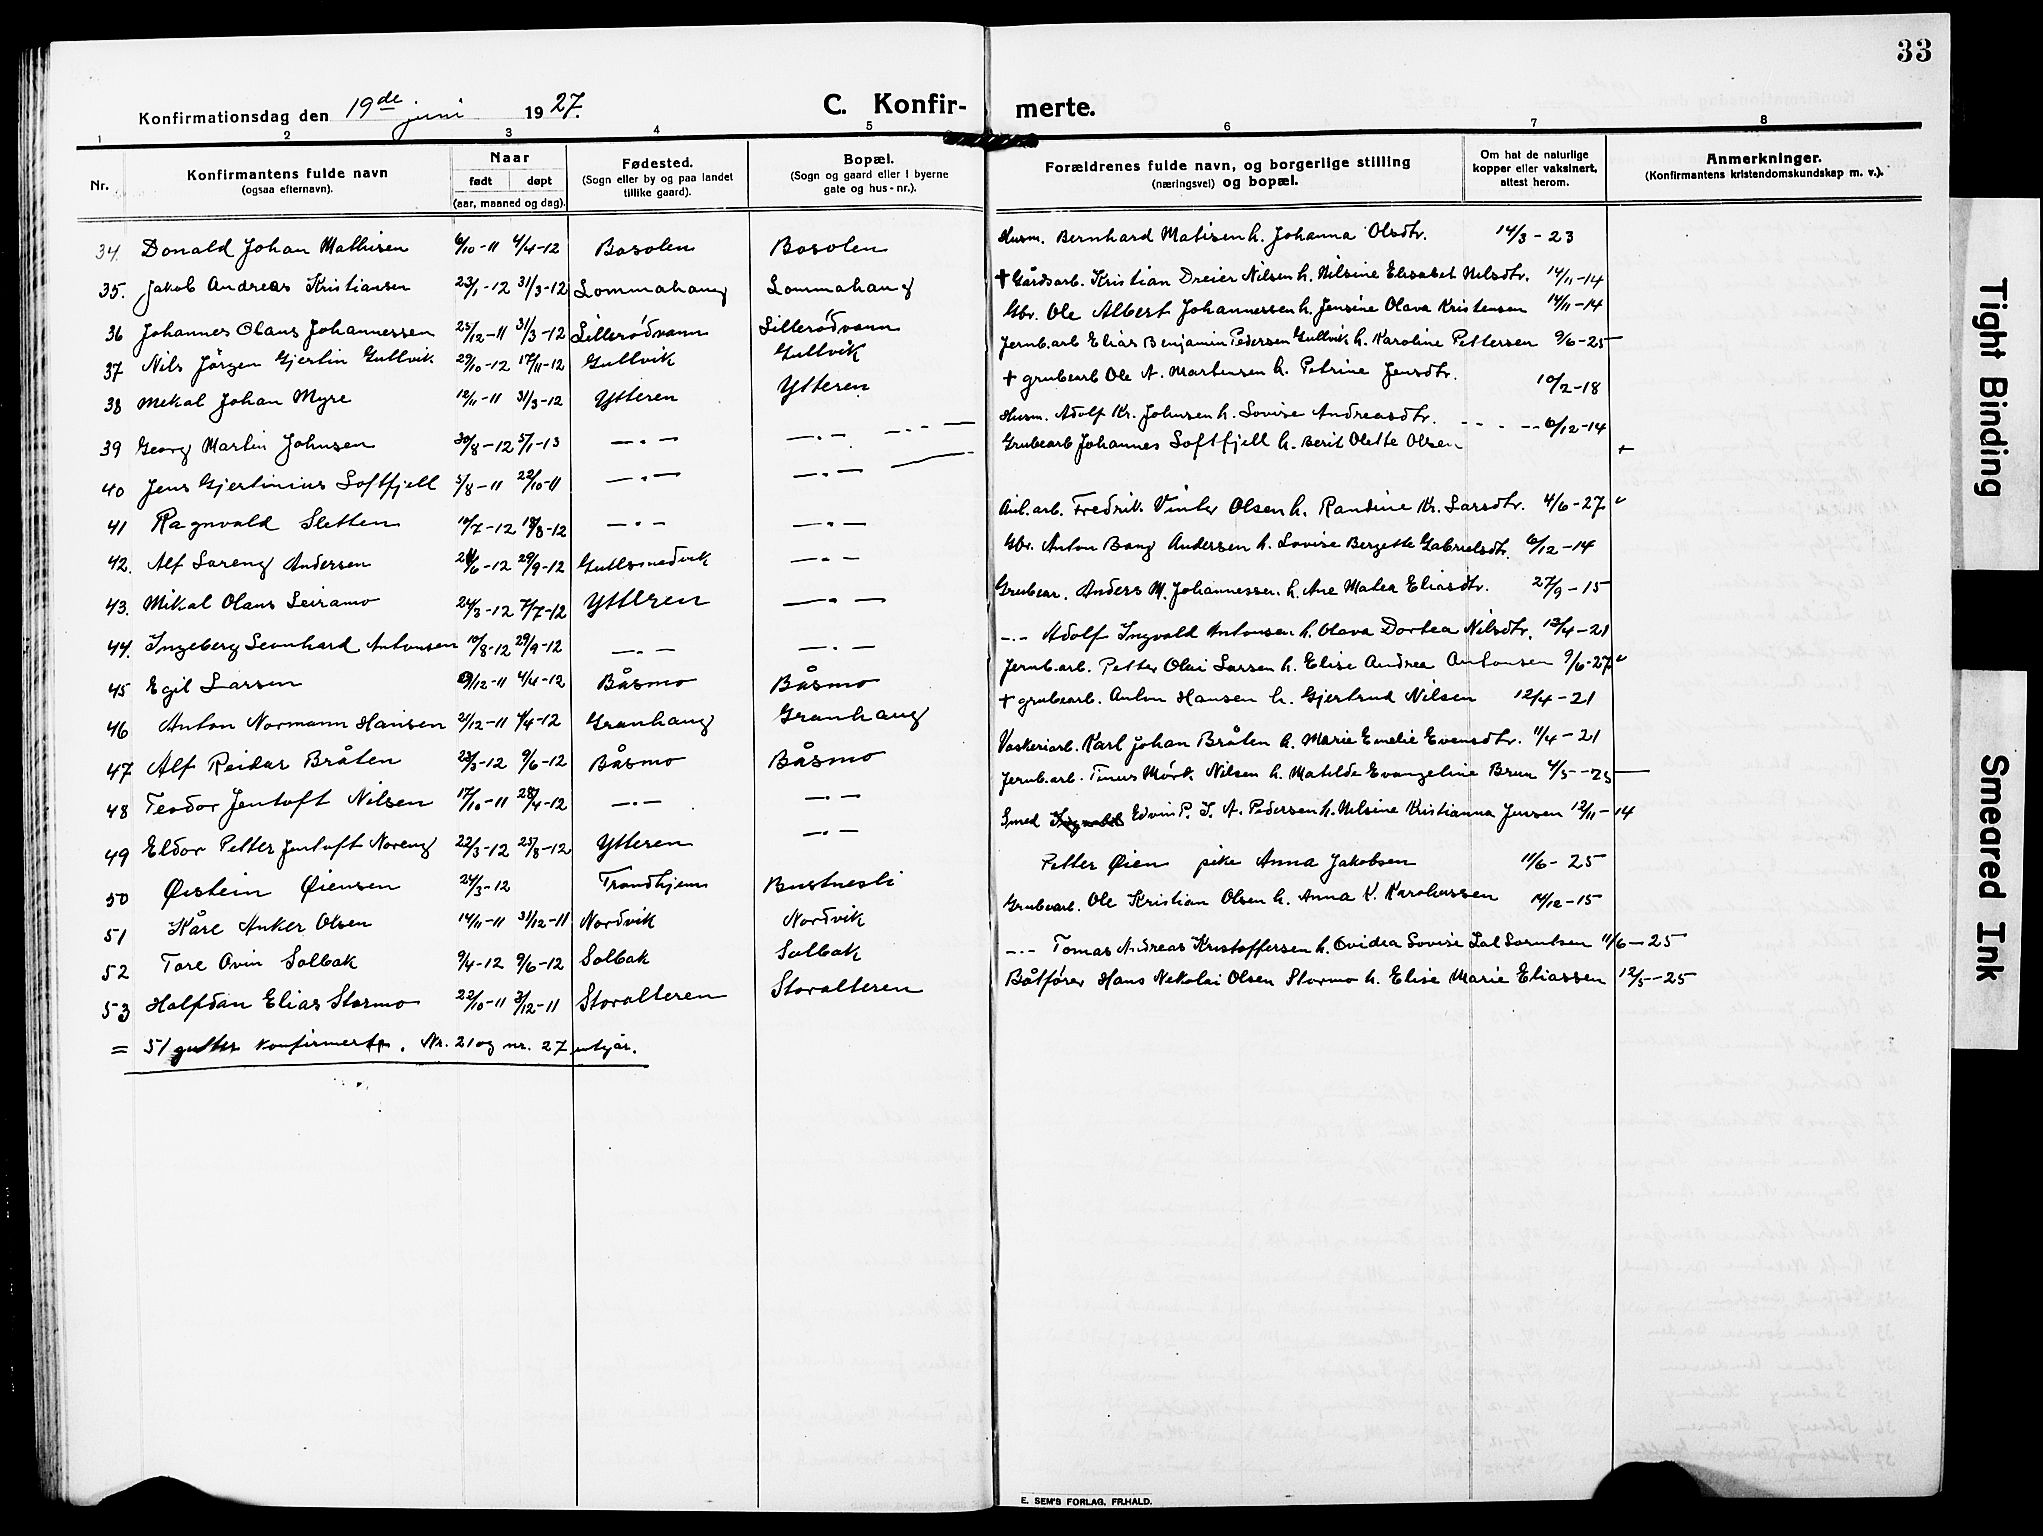 33
Konfirmationsdag den 19de juni 1927.
C. Konfir- merte.
1 2 3 4 5 6 7 8
Nr. Konfirmantens fulde navn (ogsaa efternavn). Naar født døpt (aar, maaned og dag). Fødested. (Sogn eller by og paa landet tillike gaard). Bopæl. (Sogn og gaard eller i byerne gate og hus-nr.). Forældrenes fulde navn, og borgerlige stilling (næringsvei) og bopæl. Om hat de naturlige kopper eller vaksinert, attest herom. Anmerkninger. (Konfirmantens kristendomskundskap m. v.).
34. Donald Johan Mathisen 6/10-11 4/4-12 Bosolen Bosolen Husm. Bernhard Matisen h. Johanna Olsdtr. 14/3-23
35. Jakob Andreas Kristiansen 23/1-12 31/3-12 Lommahaug Lommahaug + Gårdsarb. Kristian Dreier Nilsen h. Nilsine Elisabet Nilsdtr. 14/11-14
36 Johannes Olaus Johannessen 25/12-11 31/3-12 Lillerødvann Lillerødvann Gbr. Ole Albert Johannessen h. Jensine Olava Kristensen 14/11-14
37 Nils Jörgen Gjertin Gullvik 29/10-12 17/11-12 Gullvik Gullvik Jernb.arb Elias Benjamin Pedersen Gullvik h. Karoline Pettersen 9/6-25
38 Mekal Johan Myre 12/11-11 31/3-12 Ytteren Ytteren + grubearb Ole A. Martensen h. Petrine Jensdtr. 10/2-18
39 Georg Martin Johnsen 30/8-12 5/1-13 —·— —·— Husm. Adolf Kr. Johnsen h. Lovise Andreasdtr. 6/12-14
40 Jens Gjertinius Loftfjell 5/8-11 22/10-11 —·— —·— Grubearb Johannes Loftfjell h. Berit Olette Olsen +
41 Ragnvald Sletten 10/7-12 18/8-12 —·— —·— Fredrik Vinter Olsen h. Randine Kr. Larsdtr. 4/6-27
42. Alf Loreng Andersen 24/6-12 29/9-12 Gullsmedvik —·— Gbr. Anton Bang Andersen h. Lovise Bergette Gabrielsdtr. 6/12-14
43. Mikal Olaus Leiramo 24/3-12 7/7-12 Ytteren —·— Grubear. Anders M. Johannessen h. Ane Malea Eliasdtr. 27/9-15
44. Ingeberg Leonhard Antonsen 10/8-12 29/9-12 —·— —·— —·— Adolf Ingvald Antonsen h. Olava Dortea Nilsdtr. 12/4-21
45 Egil Larsen 12-11 4/4-12 Båsmo Båsmo Jernb.arb. Petter Olai Larsen h. Elise Andrea Antonsen 9/6-27
46 Anton Normann Hansen 21/12-11 4/4-12 Granhaug Granhaug + grubearb. Anton Hansen h. Gjertrud Nilsen 12/4-21
47 Alf Reidar Bråten 23/3-12 9/6-12 Båsmo Båsmo Vaskeriarb. Karl Johan Bråten h. Marie Emelie Evensdtr. 11/4-21
48 Teodor Jentoft Nilsen 17/10-11 28/4-12 —·— —·— Jernb.arb. Tinus Mörk Nilsen h. Matilde Evangeline Brun 4/5-25
49 Eldor Petter Jentoft Noreng 22/3-12 25/8-12 Ytteren —·— Smed Edvin P. J. A. Pedersen h. Nilsine Kristianna Jensen 12/11-14
50 Øistein Øiensen 24/3-12 Trondhjem Bustnesli Petter Øien pike Anna Jakobsen 11/6-25
51 Kåre Anker Olsen 14/11-11 31/12-11 Nordvik Nordvik Grubearb. Ole Kristian Olsen h. Anna K. Karoliussen 14/12-15
52 Tore Ovin Solbak 9/4-12 9/6-12 Solbak Solbak —·— Tomas Andreas Kristoffersen h. Ovidea Lovise 11/6-25
53 Halfdan Elias Stormo 22/10-11 3/12-11 Storalteren Storalteren Båtfører Hans Nikolai Olsen Stormo h. Elise Marie Eliassen 12/5-25
= 51 gutter konfirmert. Nr. 21 og nr. 27 utgår.
E. SEM'S FORLAG, FR.HALD.
Tight Binding
Smeared Ink